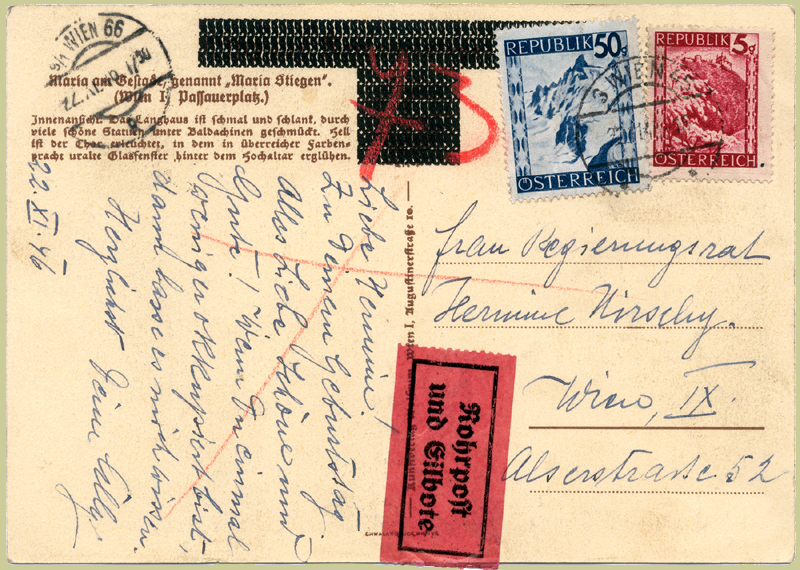 WIEN 66
Maria am Gestade, genannt „Maria Stiegen".
(Wien I, Passauerplatz.)
Innenansicht. Das Langhaus ist schmal und schlank, durch
viele schöne Statuen unter Baldachinen geschmückt. Hell
ist der Chor erleuchtet, in dem in überreicher Farben-
pracht uralte Glasfenster hinter dem Hochaltar erglühen.
REPUBLIK 50g
ÖSTERREICH
REPUBLIK 5g
ÖSTERREICH
WIEN
22. XI. 46
Liebe Hermine!
Zu Deinem Geburtstag
Alles Liebe Schöne und
Gute! Wenn Du einmal
weniger okkupiert bist,
dann lasse es mich wissen.
Herzlichst Deine
Wien I, Augustinerstraße
Frau Regierungsrat
Hermine
Wien, IX.
Alserstrasse 52
Rohrpost
und Eilbote